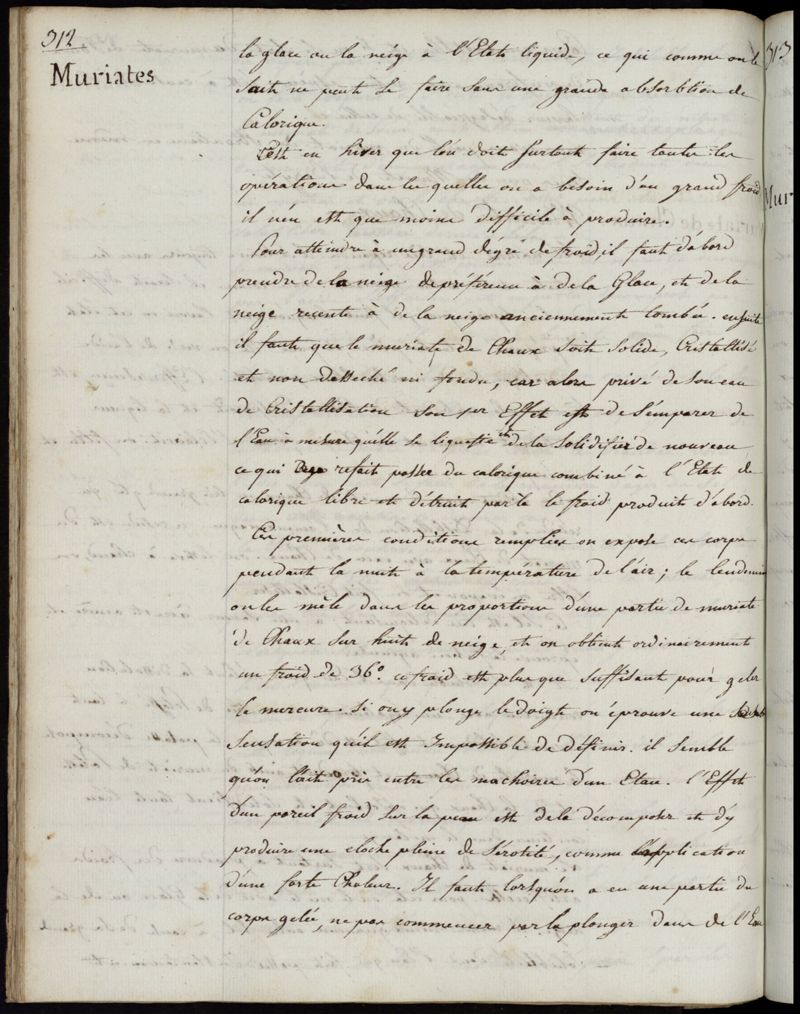 312
Muriates
la glace ou la neige à l'Etat liquide, ce qui comme on le
sait ne peut se faire sans une grande absorbtion de
Calorique.
C'est en hiver que l'on doit surtout faire toutes les
opérations dans les quelles on a besoin d'un grand froid
il n'en est que moins difficile à produire.
Pour atteindre à un grand dégré de froid, il faut d'abord
prendre de la neige de préférence à de la Glace, et de la
neige recente à de la neige anciennement tombée. ensuite
il faut que le muriate de Chaux soit solide, Cristallisé
et non desseché ni fondu, car alors privé de son eau
de Cristallisation son 1er Effet est de s'emparer de
l'Eau à mesure qu'elle se liquefie et de la solidifier de nouveau
ce qui refait passer du calorique combiné à l'Etat de
calorique libre et détruit par là le froid produit d'abord.
Ces premières conditions remplies on expose ces corps
pendant la nuit à la température de l'air; le lendemain
on les mêle dans les proportions d'une partie de muriate
de Chaux sur huit de neige, et on obtient ordinairement
un froid de 36°. ce froid est plus que suffisant pour geler
le mercure. Si on y plonge le doigt on éprouve une
sensation qu'il est Impossible de définir. il semble
qu'on l'ait pris entre les machoires d'un Etau. l'Effet
d'un pareil froid sur la peau est de la décomposer et d'y
produire une cloche pleine de sérosité, comme l'application
d'une forte Chaleur. Il faut, lorsqu'on a eu une partie du
corps gelée, ne pas commencer par la plonger dans de l'Eau
313
Mur